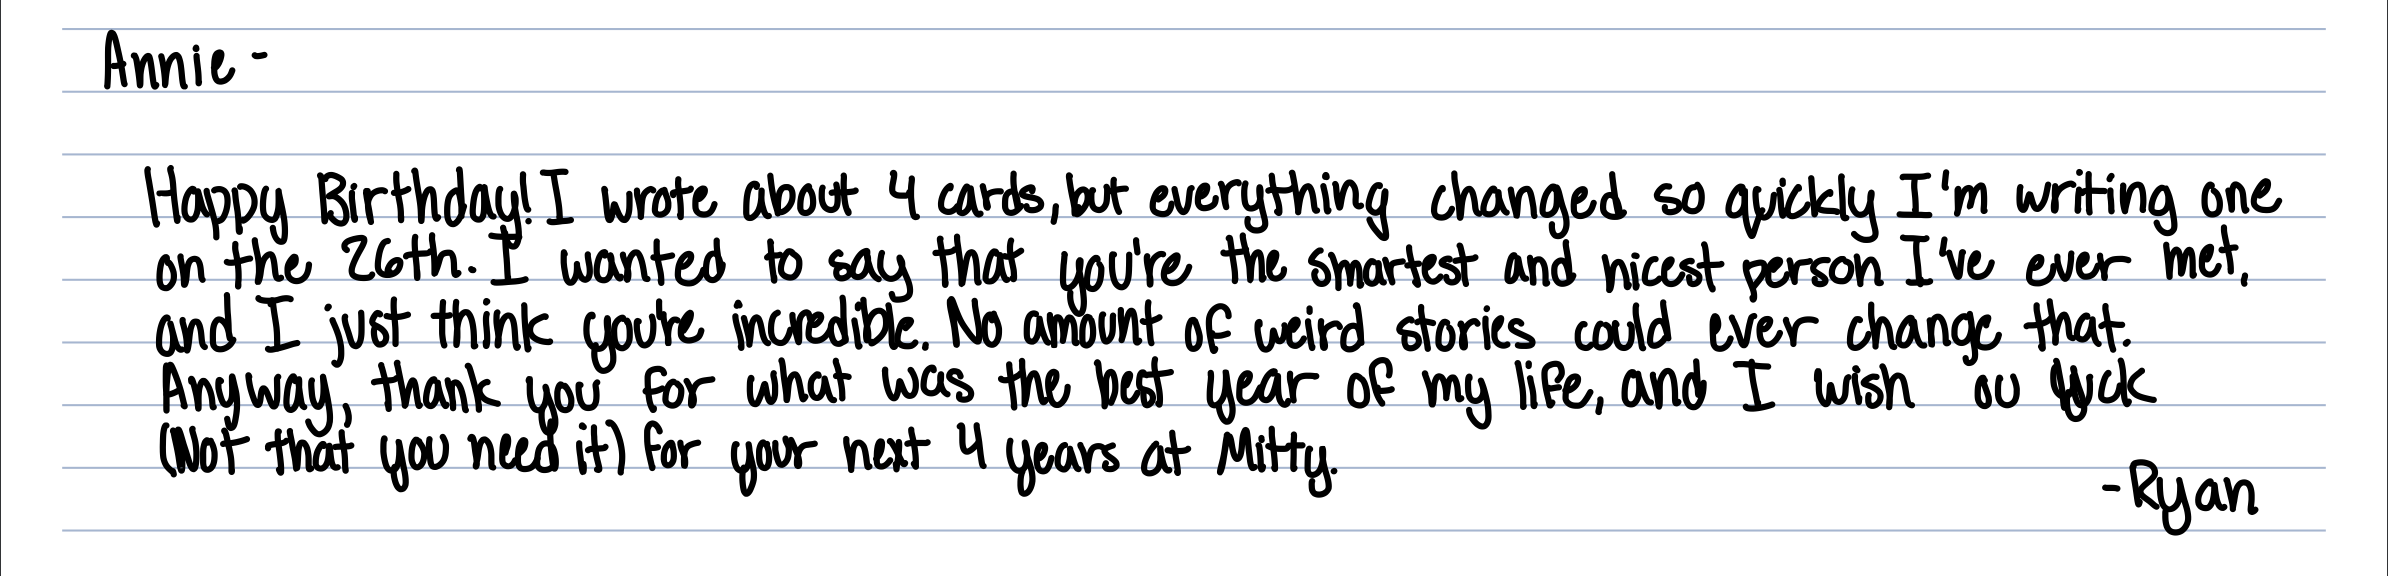 Annie -
Happy Birthday! I wrote about 4 cards, but everything changed so quickly I'm writing one
on the 26th. I wanted to say that you're the smartest and nicest person I've ever met,
and I just think you're incredible. No amount of weird stories could ever change that.
Anyway, thank you for what was the best year of my life, and I wish ou luck
(Not that you need it) for your next 4 years at Mitty.
-Ryan